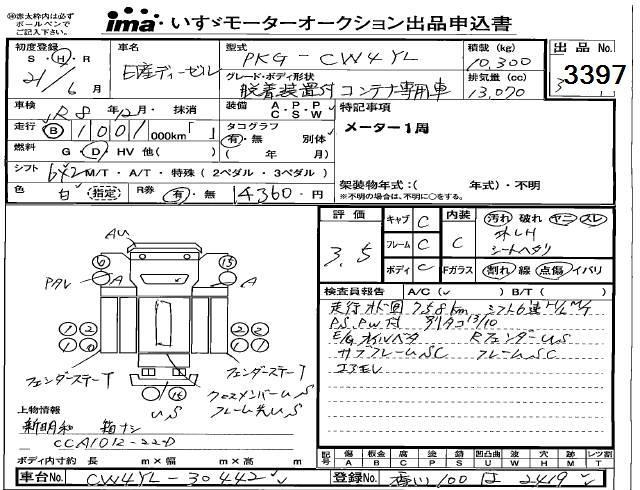 ㊟赤太枠内は必ず
ボールペンで
ご記入下さい。
ima いすゞモーターオークション出品申込書
初度登録 S・H・R 21/6月
車名 日産ディーゼル
型式 PKG-CW4YL
積載(kg) 10,300
出品No. 3397
グレード・ボディ形状 脱着装置付コンテナ専用車
排気量(cc) 13,070
車検 R8年12月・抹消
装備 A・P・P C・S・W
特記事項
メーター1周
走行 B 1001 000km「 」
タコグラフ 有・無 別体
燃料 G・D・HV 他( )
( 年 月)
シフト 6×2 M/T・A/T・特殊(2ペダル・3ペダル)
架装物年式:( 年式)・不明
※不明の場合は、不明に○をする。
色 白 指定 R券 有・無 14360-円
評価 3.5
キャブ C
フレーム C
ボディ C
内装 C
Fガラス
汚れ 破れ ヤニ スレ
シートヘタリ
割れ 線 点傷 イバリ
AU
6
15
A
A
検査員報告 A/C( ) B/T( )
P.S, P.W付 デジタコ
E/G オイルベタ RフェンダーU.S
サブフレームSC フレームSC
エアモレ
フェンダーステーT
フェンダーステーT
クロスメンバーU.S
U.S
上物情報
新明和 箱ナシ
CCA1012-22-D
ボディ内寸約 長 m×幅 m×高 m
記号 傷A 板金B 腐C 塗P 錆S 凹凸曲U 波W 穴H 跡M レンズ割T
車台No. CW4YL-30442
登録No. 香川100は2419